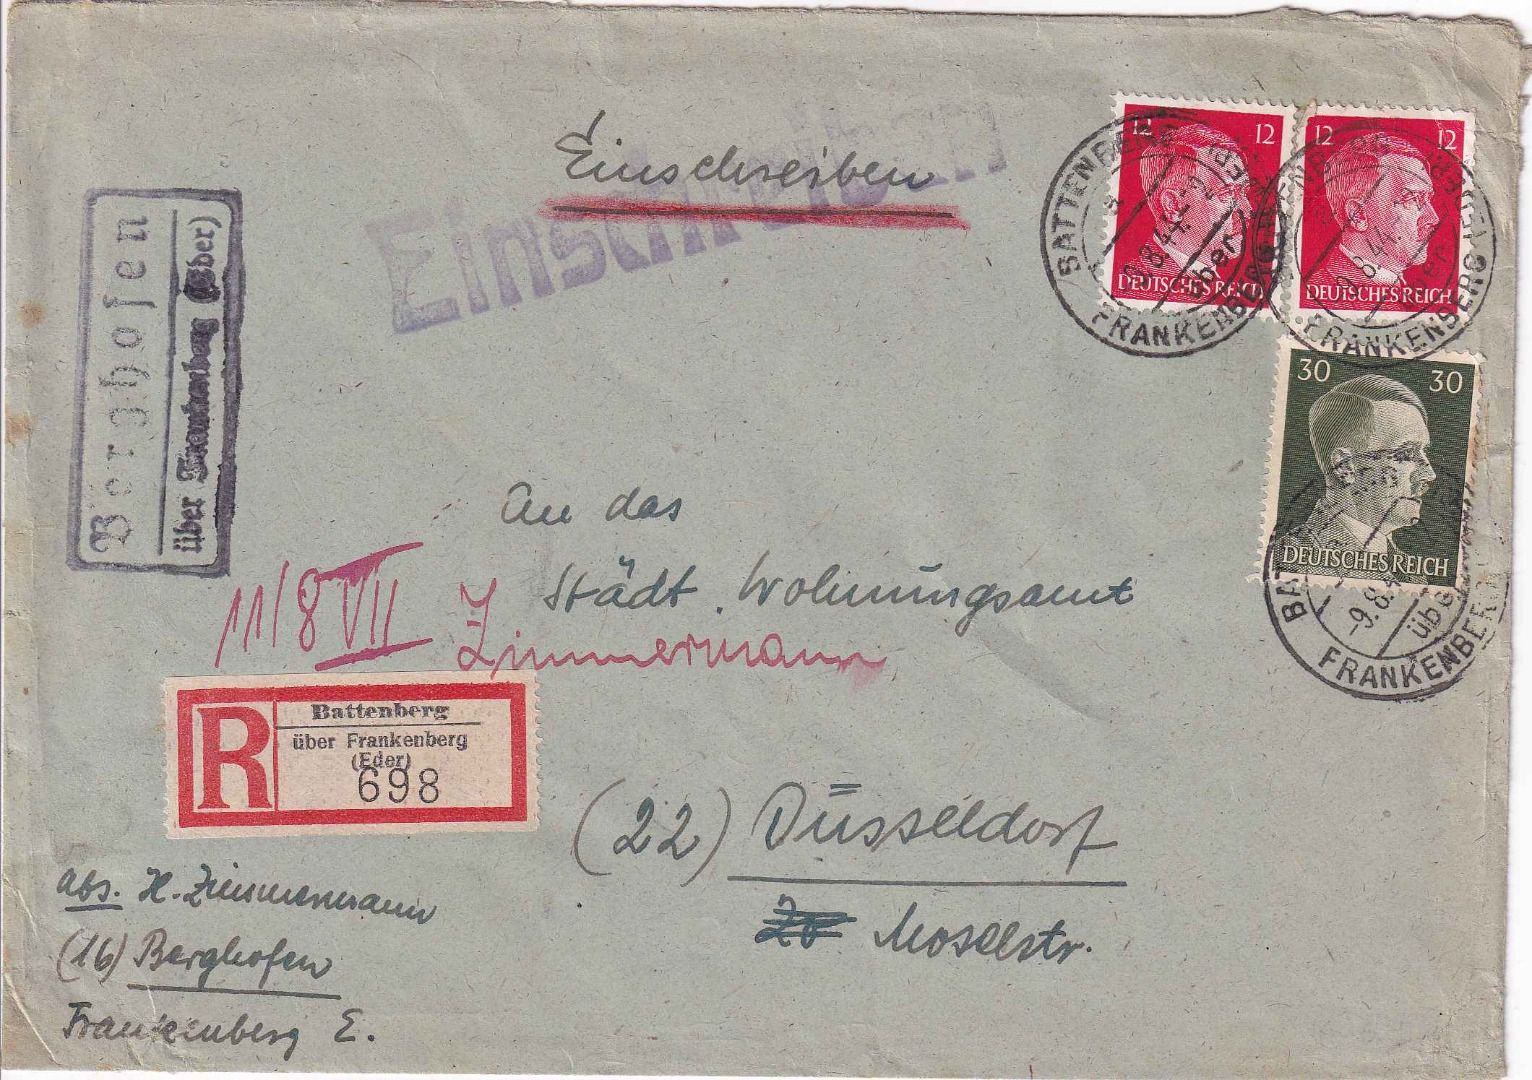 Einschreiben
Einschreiben
12 12
DEUTSCHES REICH
12 12
DEUTSCHES REICH
BATTENBERG
9.8.44
über
FRANKENBERG
FRANKENBERG
9.8.44
über
30 30
DEUTSCHES REICH
-9.8.4
über
FRANKENBERG
Berghofen
über Frankenberg (Eder)
An das
Städt. Wohnungsamt
11/8 VII
Zimmermann
R
Battenberg
über Frankenberg
(Eder)
698
(22) Düsseldorf
Moselstr.
Abs. H. Zimmermann
(16) Berghofen
Frankenberg E.